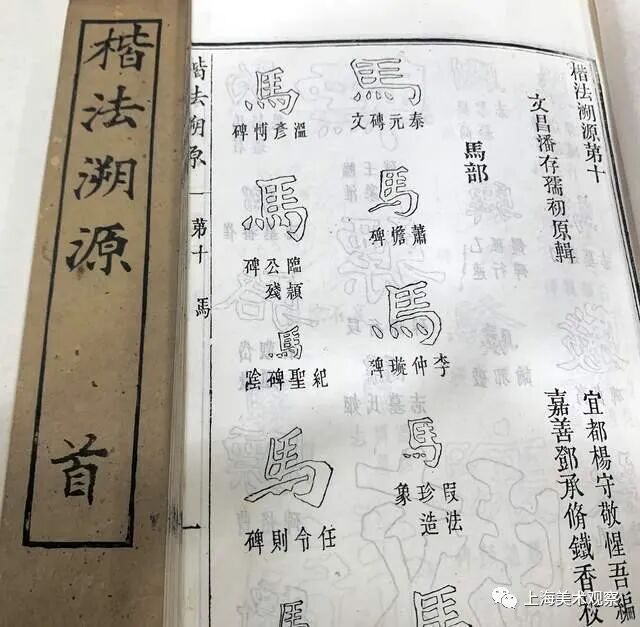 楷法溯源
首
楷法溯源第十
文昌潘存孺初原輯
宜都楊守敬惺吾編
嘉善鄧承脩鐵香校
馬部
馬
泰元磚文
馬
蕭憺碑
馬
李仲璇碑
馬
叚法珍造象
馬
馬
溫彥博碑
馬
臨潁公殘碑
馬
紀聖碑陰
馬
任令則碑
馬
楷法溯源
第十
馬
一
上海美术观察